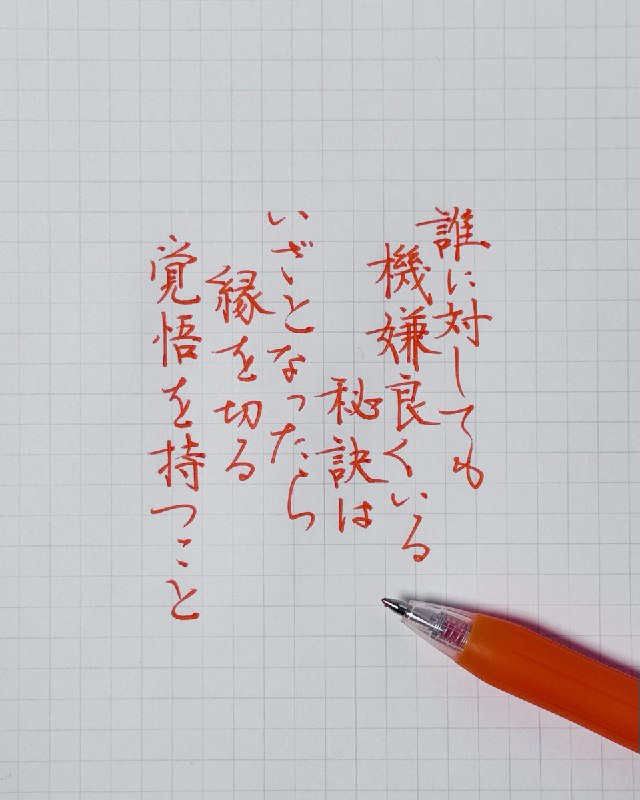 誰に対しても
機嫌良くいる
秘訣は
いざとなったら
縁を切る
覚悟を持つこと